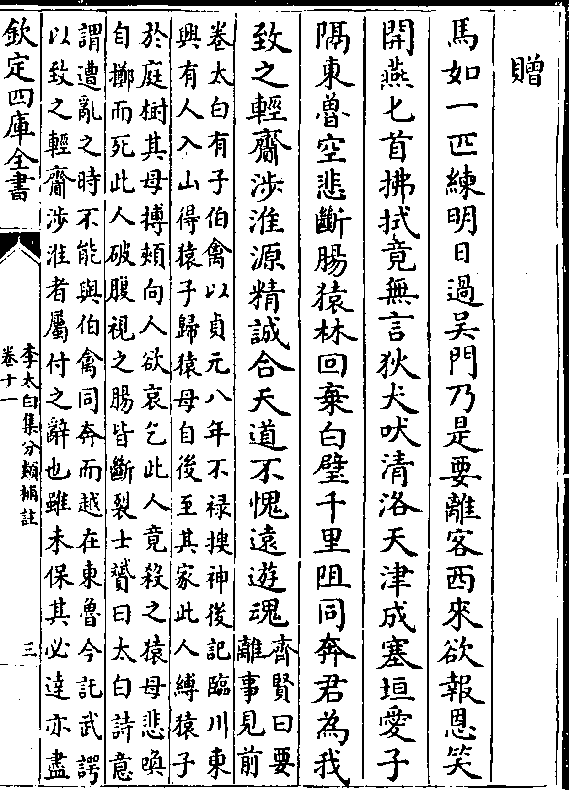 贈
馬如一匹練明日過吳門乃是要離客西來欲報恩笑
開燕匕首拂拭竟無言狄犬吠清洛天津成塞垣愛子
隔東魯空悲斷腸猿林回棄白璧千里阻同奔君為我
致之輕齎涉淮源精誠合天道不愧遠遊魂
齊賢曰要
離事見前
卷太白有子伯禽以貞元八年不禄搜神後記臨川東
興有人入山得猿子歸猿母自後至其家此人縛猿子
於庭樹其母搏頰向人欲哀乞此人竟殺之猿母悲喚
自擲而死此人破腹視之腸皆斷裂士贇曰太白詩意
謂遭亂之時不能與伯禽同奔而越在東魯今託武諤
以致之輕齎涉淮者屬付之辭也雖未保其必達亦盡
欽定四庫全書
李太白集分類補註
卷十一
三